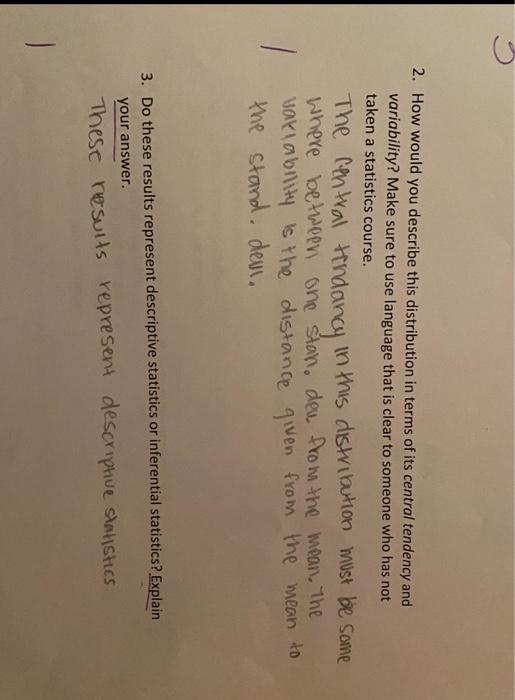 3
2. How would you describe this distribution in terms of its central tendency and
variability? Make sure to use language that is clear to someone who has not
taken a statistics course.
The central tendancy in this distribution must be some
where between one stan. dev from the mean. The
variability is the distance given from the mean to
the stand. devi.
/
3. Do these results represent descriptive statistics or inferential statistics? Explain
your answer.
These results represent descriptive statistics
/